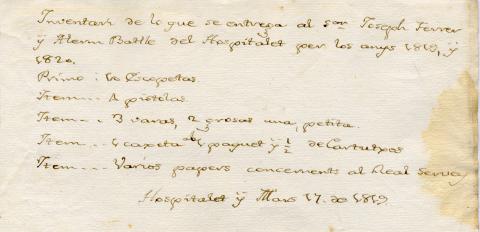 Inventari de lo que se entrega al Sor Joseph Ferrer
ÿ Alerm Batlle del Hospitalet per los anys 1819, ÿ
1820.
Primo: 10 Escopetas.
Item... 4 pistolas.
Item... 3 varas, 2 grosas una petita.
Item... 1 caxeta ab 1 paquet ÿ 1/2 de Cartutxos
Item... Varios papers concernents al Real Servey
Hospitalet ÿ Mars 17. de 1819.